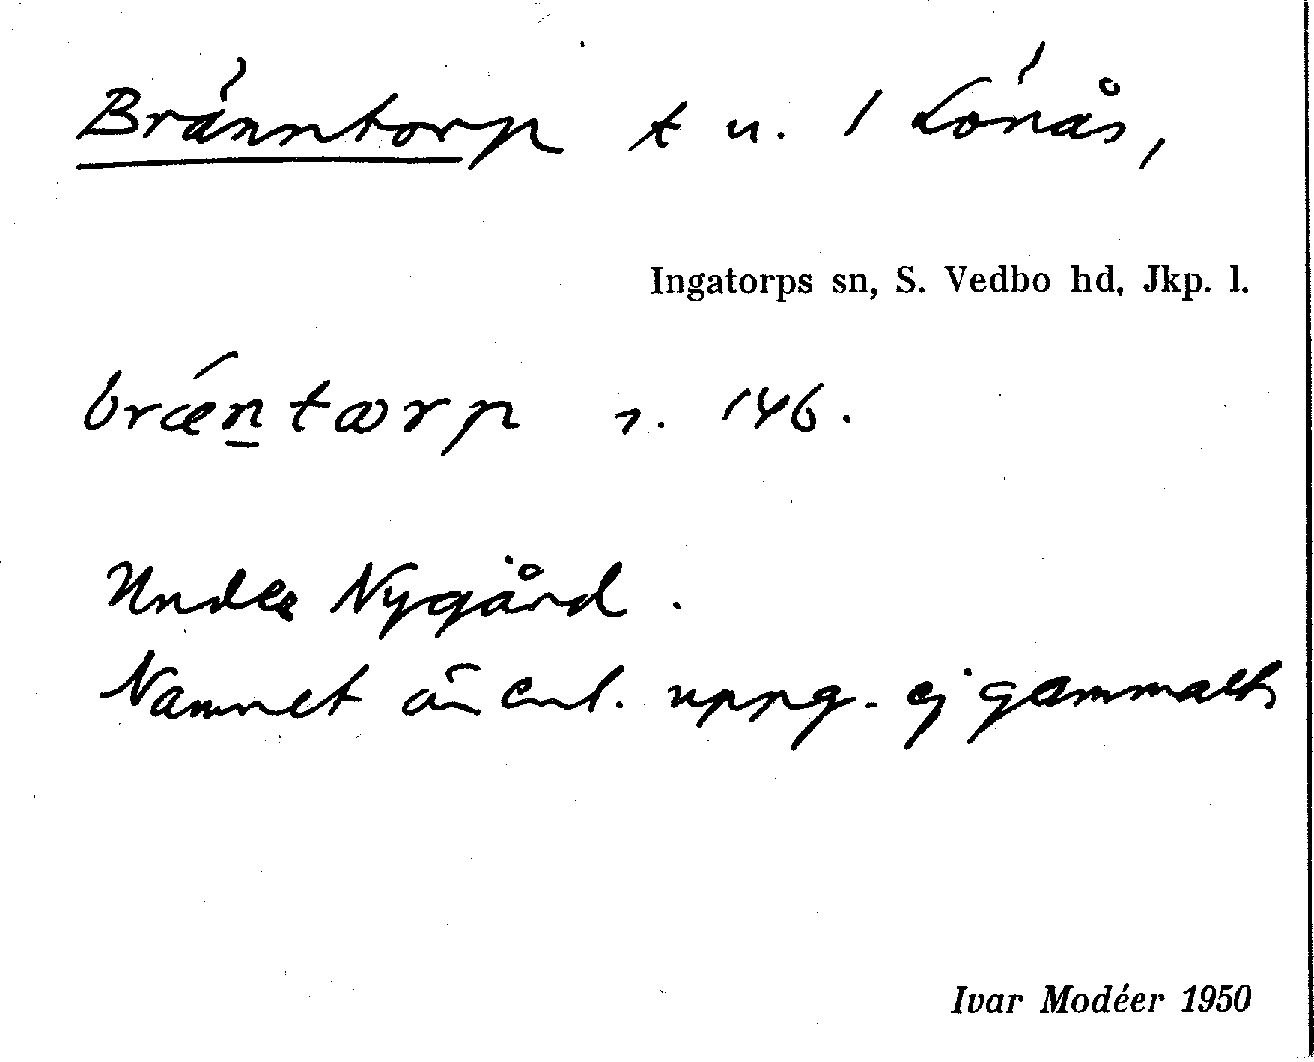 Bränntorp t u. 1 Lönås,
Ingatorps sn, S. Vedbo hd, Jkp. l.
bræ´n̲tꜵrp r. 146.
Under Nygård.
Namnet är enl. uppg. ej gammalt
Ivar Modéer 1950